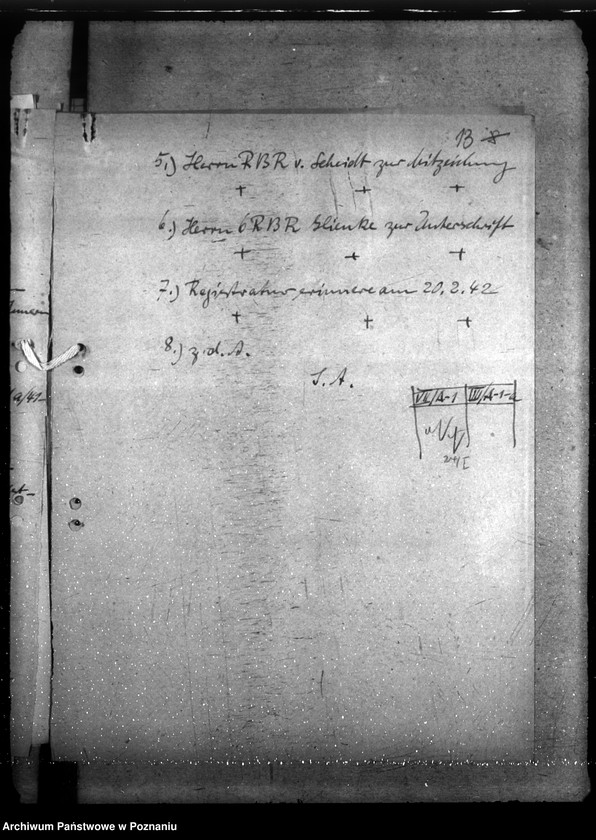 13 8
5.) Herrn RBR v. Scheidt zur Mitzeichnung
+ + +
6.) Herrn ORBR Glienke zur Unterschrift
+ + +
7.) Registratur erinnere am 20.2.42
+ + +
8.) z.d.A.
I. A.
VI/A-1 III/A-1-a
a/41
Archiwum Państwowe w Poznaniu